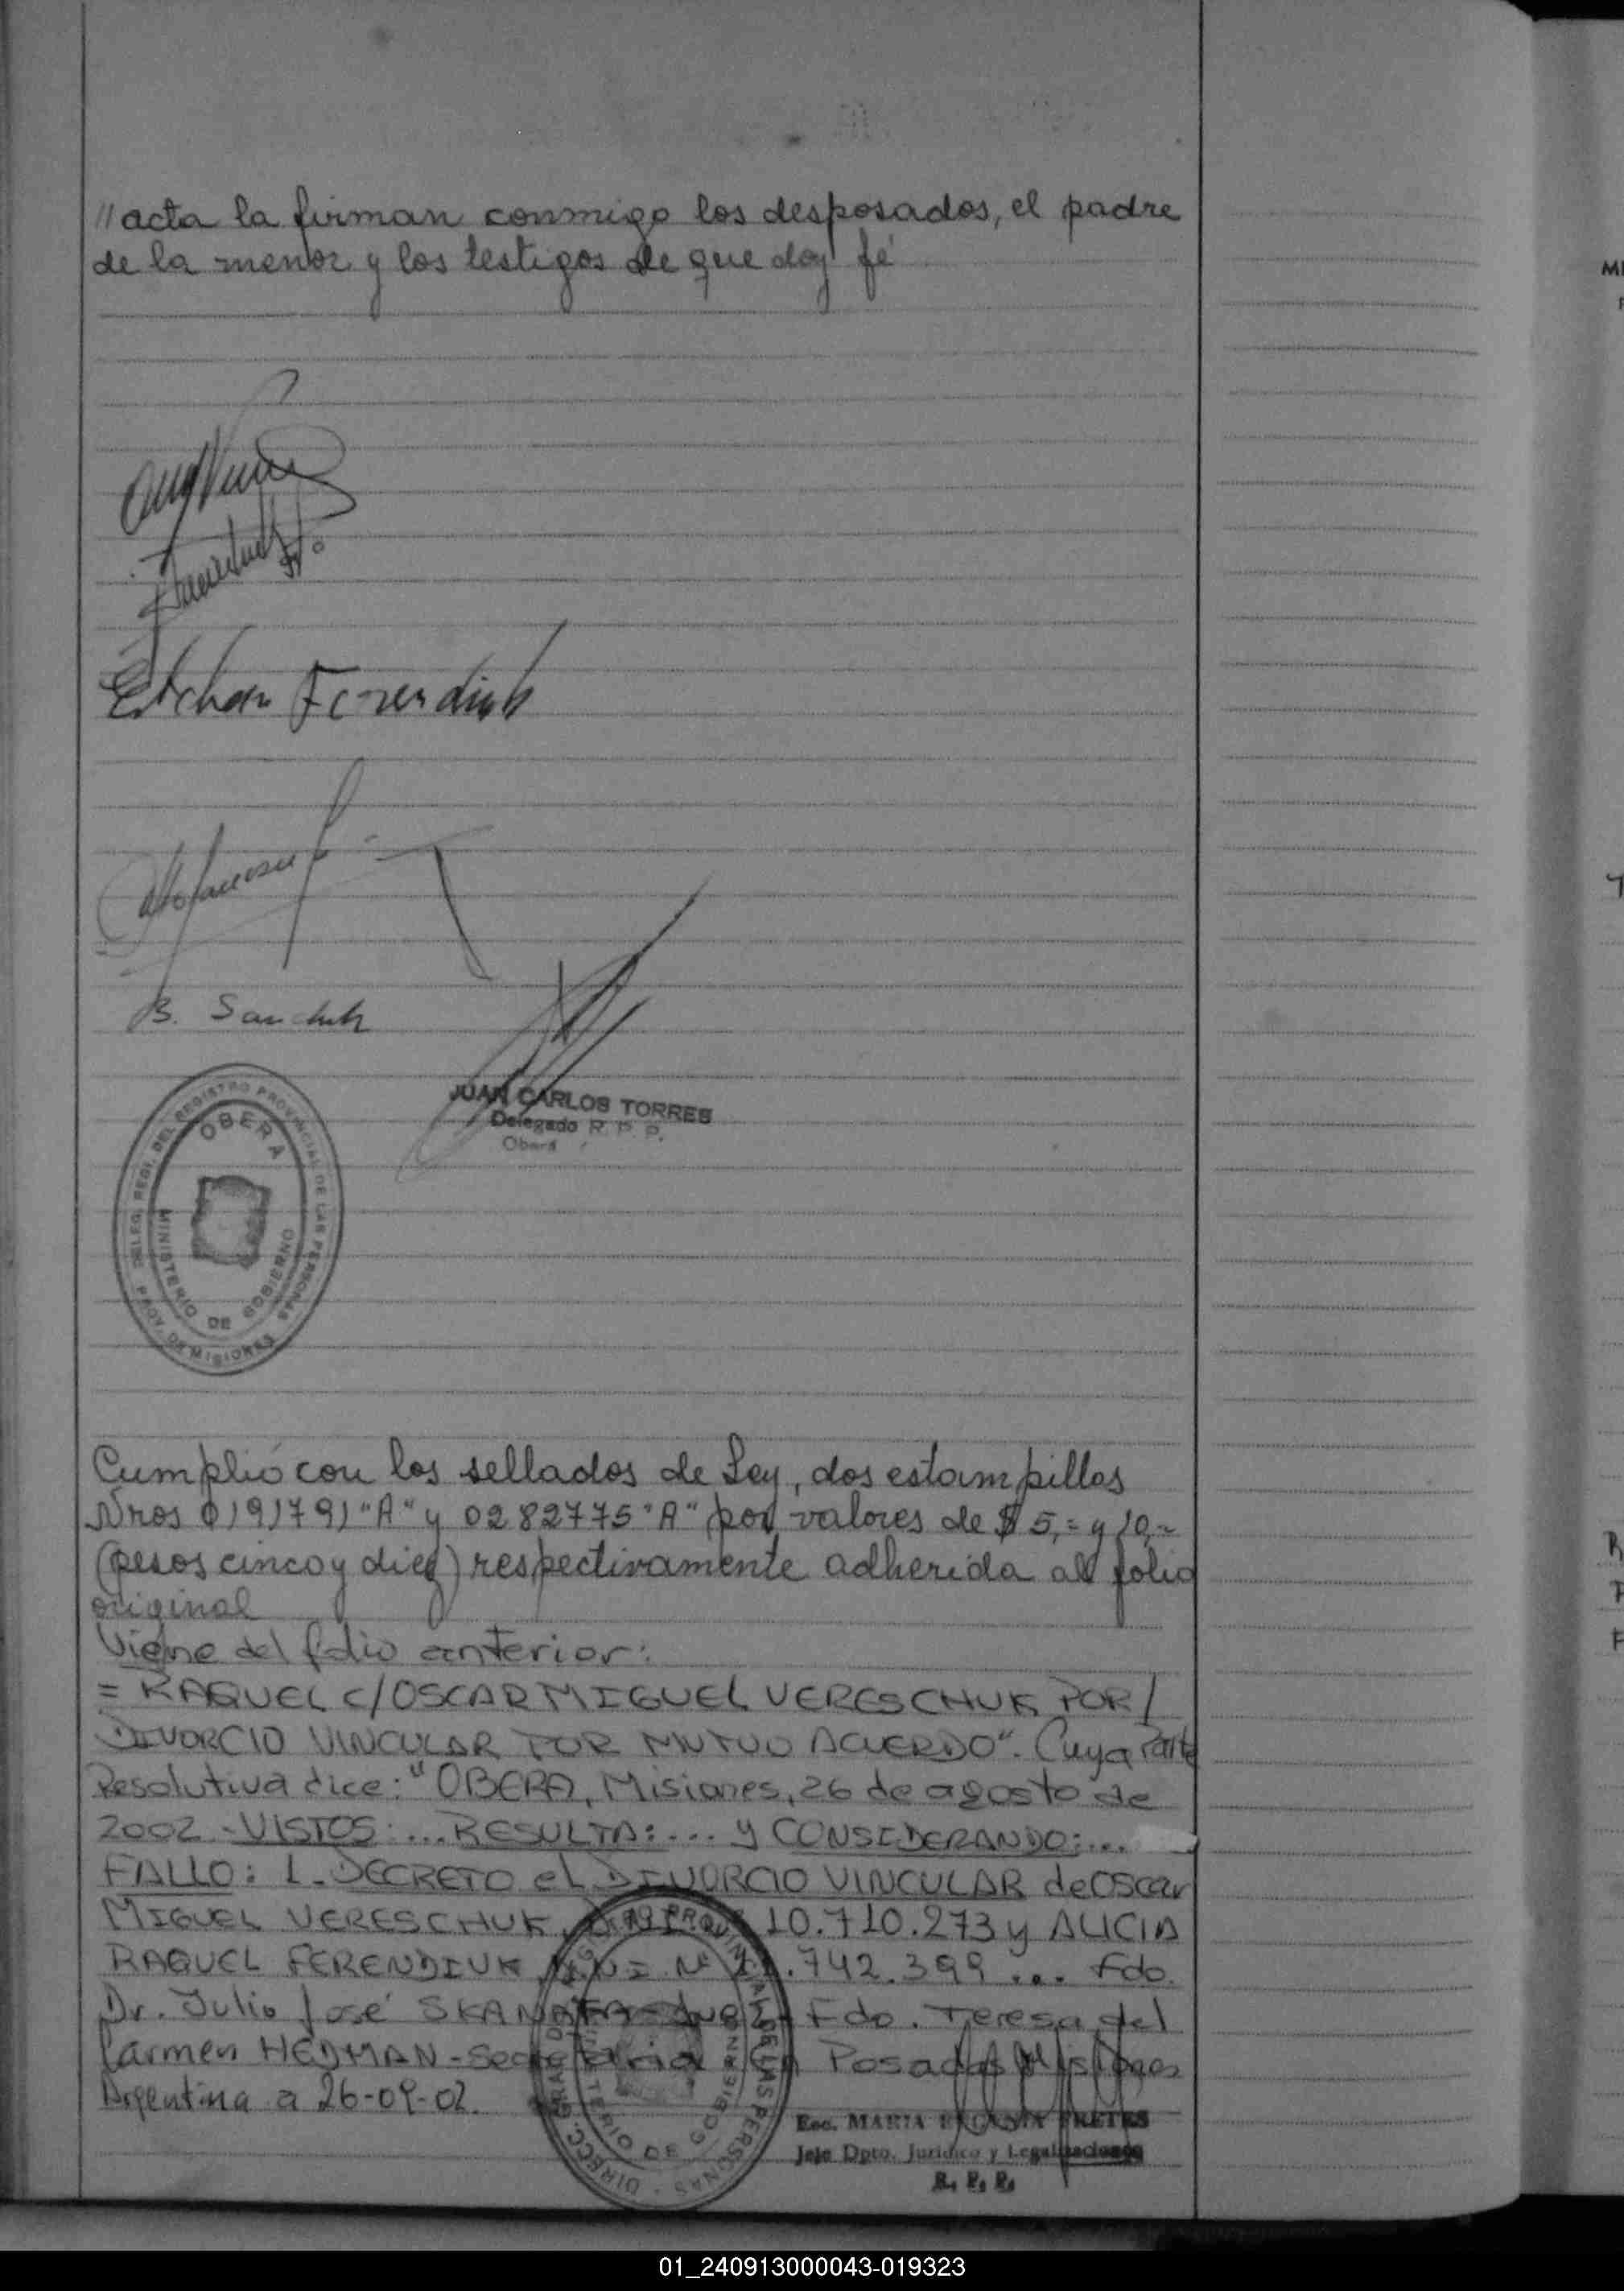 //acta la firman conmigo los desposados, el padre
de la menor y los testigos de que doy fé
Esteban Ferendiuk
B. Sanchuk
JUAN CARLOS TORRES
Delegado R. P. P.
Oberá
DELEG. REGI. DEL REGISTRO PROVINCIAL DE LAS PERSONAS
OBERA
MINISTERIO DE GOBIERNO
PROV. DE MISIONES
Cumplió con los sellados de Ley, dos estampillas
Nros 0191791 "A" y 0282775 "A" por valores de $ 5,= y 10,=
(pesos cinco y diez) respectivamente adherida al folio
original
Viene del folio anterior:
= RAQUEL c/OSCAR MIGUEL VERESCHUK POR/
DIVORCIO VINCULAR POR MUTUO ACUERDO". Cuya Parte
Resolutiva dice: "OBERA, Misiones, 26 de agosto de
2002 - VISTOS: ... RESULTA: ... y CONSIDERANDO: ...
FALLO: 1_ DECRETO el DIVORCIO VINCULAR de Oscar
MIGUEL VERESCHUK, 10.710.273 y ALICIA
RAQUEL FERENDIUK D.N.I Nº .742.399 ... Fdo.
Dr. Julio José SKANATA - Juez - Fdo. Teresa del
Carmen HEDMAN - Secretaria En Posadas Misiones
Argentina a 26-09-02.
MINISTERIO DE GOBIERNO
Esc. MARIA EUGENIA FRETES
Jefe Dpto. Jurídico y Legalizaciones
R. P. P.
01_240913000043-019323